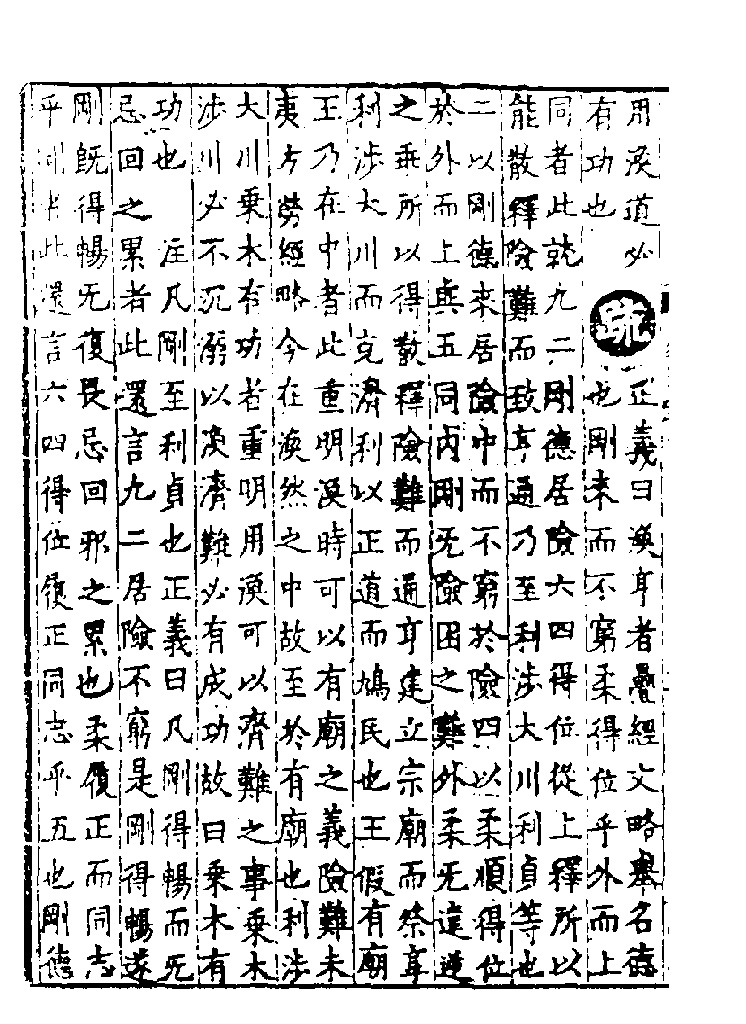 用渙道必
有功也
疏
正義曰渙亨者疊經文略舉名德
也剛來而不窮柔得位乎外而上
同者此就九二剛德居險六四得位從上釋所以
能散釋險難而致亨通乃至利涉大川利貞等也
二以剛德來居險中而不窮於險四以柔順得位
於外而上與五同內剛无險困之難外柔无違逆
之乖所以得散釋險難而通亨建立宗廟而祭亨
利涉大川而克濟利以正道而鳩民也王假有廟
王乃在中者此重明渙時可以有廟之義險難未
夷方勞經略今在渙然之中故至於有廟也利涉
大川乘木有功者重明用渙可以濟難之事乘木
涉川必不沉溺以渙濟難必有成功故曰乘木有
功也　注凡剛至利貞也正義曰凡剛得暢而无
忌回之累者此還言九二居險不窮是剛得暢遂
剛既得暢无復畏忌回邪之累也柔履正而同志
乎剛者此還言六四得位履正同志乎五也剛德